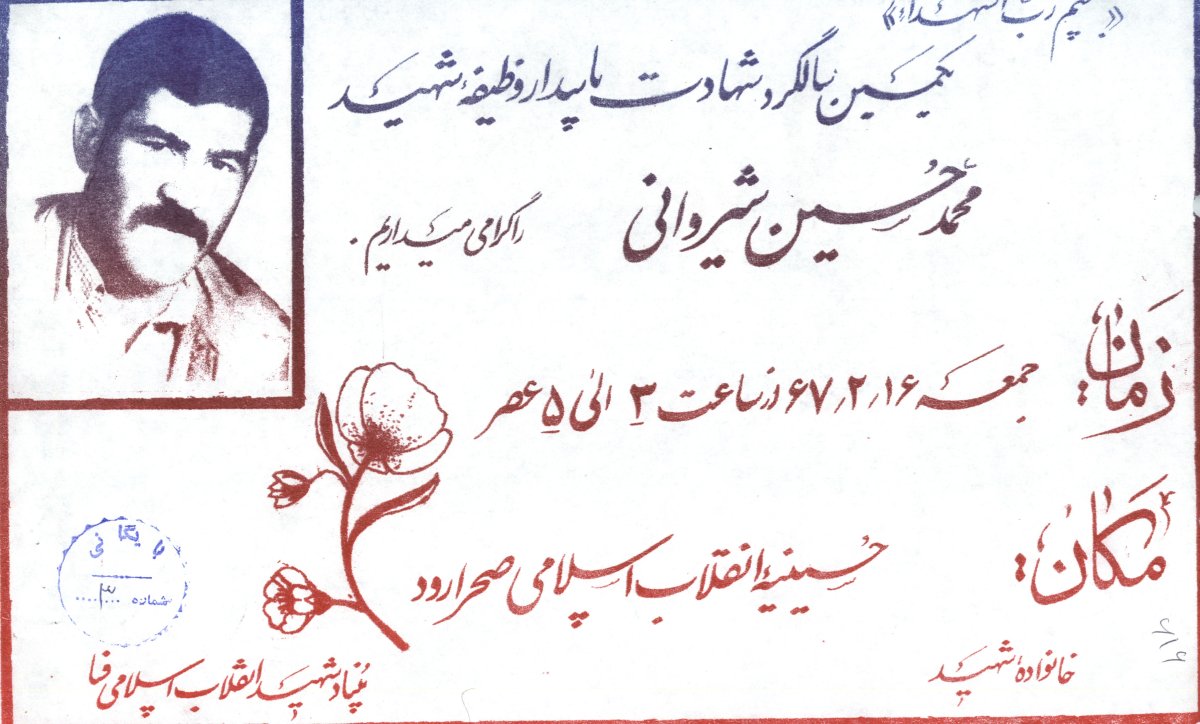 «بسم رب الشهداء»
یکمین سالگرد شهادت پاسدار وظیفهٔ شهید
محمد حسین شیروانی
را گرامی میداریم.
زمان: جمعه ۱۶/۲/۶۷ از ساعت ۳ الی ۵ عصر
مکان: حسینیهٔ انقلاب اسلامی صحرارود
خانوادهٔ شهید
بنیاد شهید انقلاب اسلامی فسا
بایگانی
شماره ۳